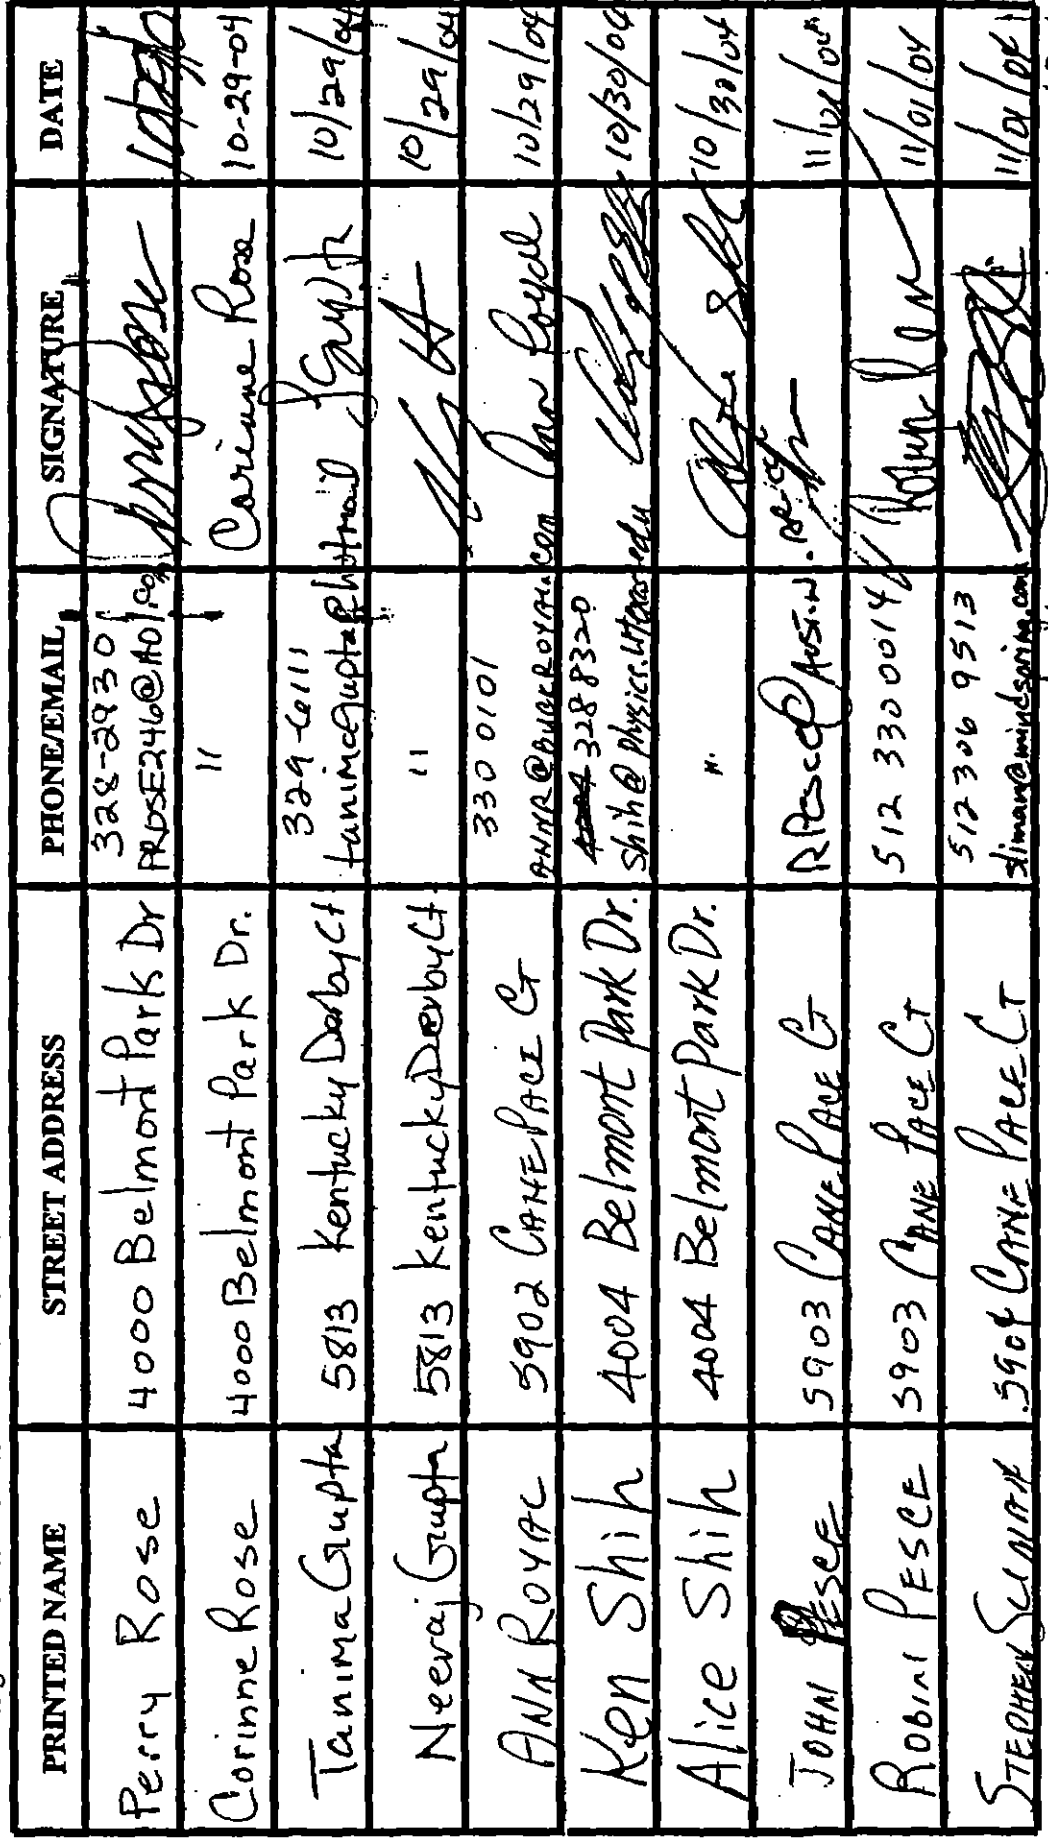 PRINTED NAME STREET ADDRESS PHONE/EMAIL SIGNATURE DATE
Perry Rose 4000 Belmont Park Dr 328-2930
PROSE246@AOL.COM
Corinne Rose 4000 Belmont Park Dr. " Corinne Rose 10-29-04
Tanima Gupta 5813 Kentucky Derby Ct 329-6111 10/29/04
tanimagupta@hotmail
Neeraj Gupta 5813 Kentucky Derby Ct. " 10/29/04
ANN ROYAL 5902 CANE PACE CT 330 0101 Ann Royal 10/29/04
ANNR@BUCKROYAL.COM
Ken Shih 4004 Belmont Park Dr. 328 8320 10/30/04
shih@physics.utexas.edu
Alice Shih 4004 Belmont Park Dr. " 10/30/04
JOHN PESCE 5903 CANE PACE CT RPesce@Austin.RR. 11/01/04
ROBIN PESCE 5903 CANE PACE CT 512 330 0014 11/01/04
STEPHEN SLIMAN 5904 CANE PACE CT 512 306 9513 11/01/04
slimans@mindspring.com